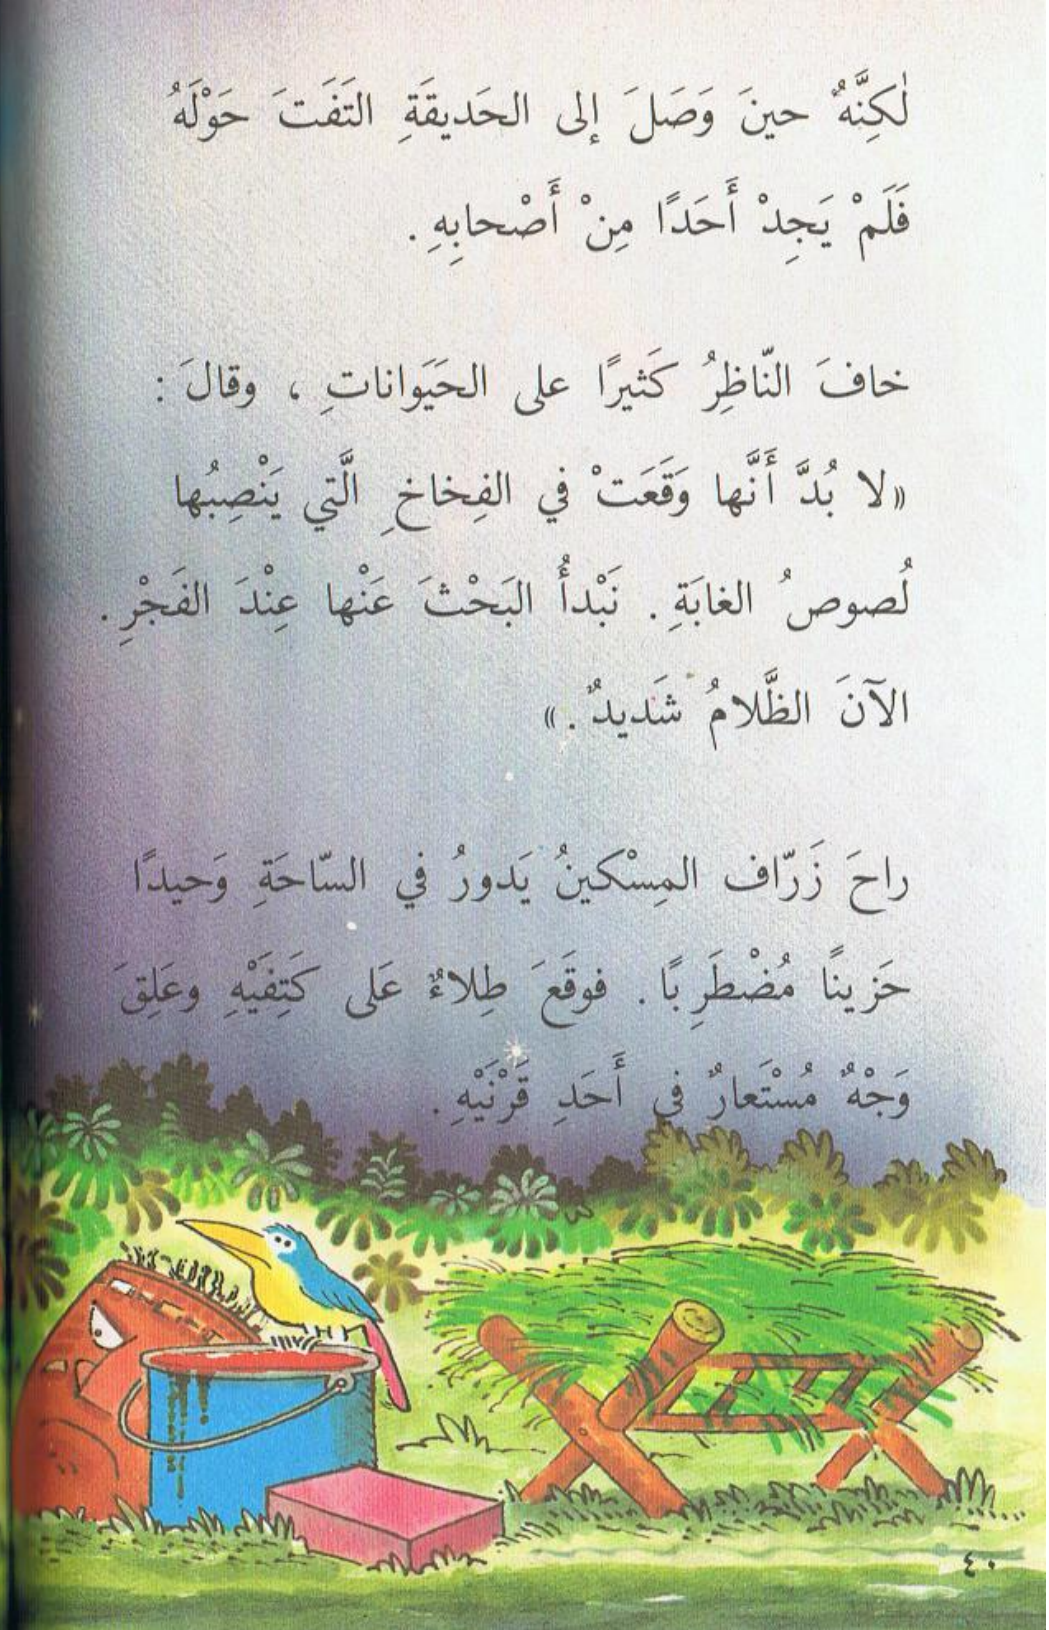 لٰكِنَّهُ حينَ وَصَلَ إلى الحَديقَةِ التَفَتَ حَوْلَهُ
فَلَمْ يَجِدْ أَحَدًا مِنْ أَصْحابِهِ.
خافَ النّاظِرُ كَثيرًا على الحَيَواناتِ ، وقالَ :
«لا بُدَّ أَنَّها وَقَعَتْ في الفِخاخِ الَّتي يَنْصِبُها
لُصوصُ الغابَةِ . نَبْدأُ البَحْثَ عَنْها عِنْدَ الفَجْرِ.
الآنَ الظَّلامُ شَديدٌ.»
راحَ زَرّاف المِسْكينُ يَدورُ في السّاحَةِ وَحيدًا
حَزينًا مُضْطَرِبًا . فوقَعَ طِلاءٌ عَلى كَتِفَيْهِ وعَلِقَ
وَجْهٌ مُسْتَعارٌ في أَحَدِ قَرْنَيْهِ.
٤٠